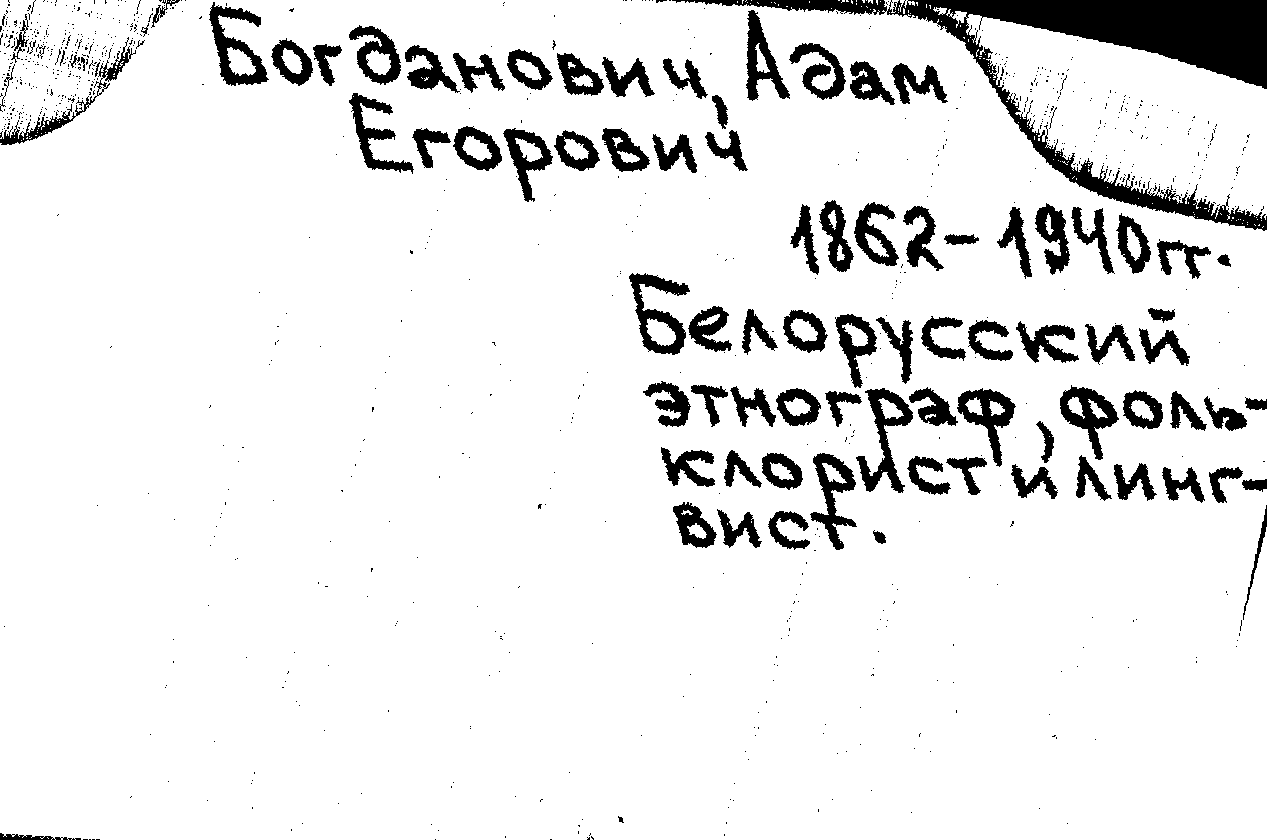 Богданович, Адам
Егорович
1862-1940гг.
Белорусский
этнограф, фоль-
клорист и линг-
вист.